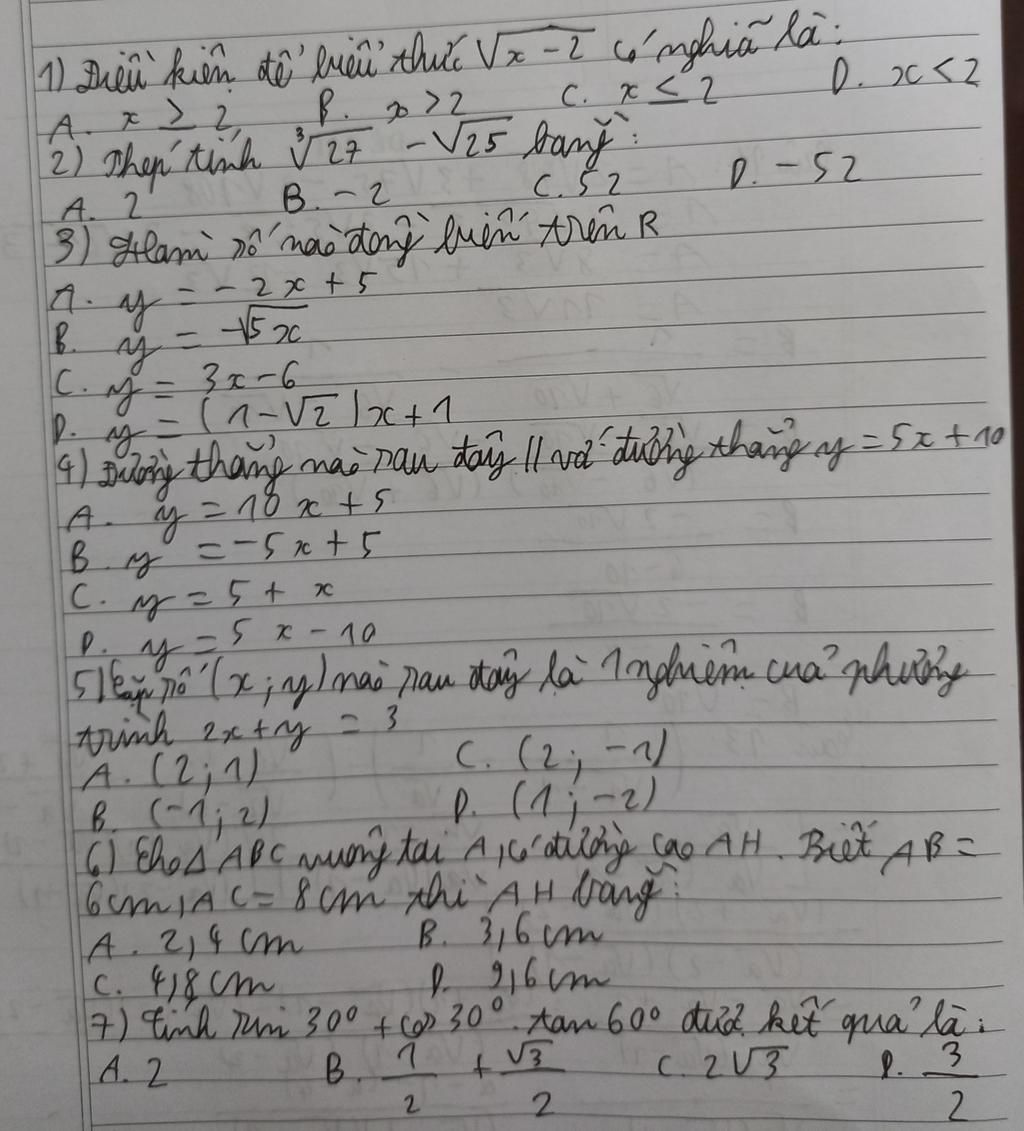 1) Điều kiện để biểu thức √x-2 có nghĩa là:
A. x ≥ 2 B. x > 2 C. x ≤ 2 D. x < 2
2) Phép tính ∛27 - √25 bằng:
A. 2 B. -2 C. 52 D. -52
3) Hàm số nào đồng biến trên R
A. y = -2x + 5
B. y = -√5x
C. y = 3x - 6
D. y = (1-√2)x + 1
4) Đường thẳng nào sau đây // với đường thẳng y = 5x + 10
A. y = 10x + 5
B. y = -5x + 5
C. y = 5 + x
D. y = 5x - 10
5) Cặp số (x; y) nào sau đây là 1 nghiệm của phương
trình 2x+y = 3
A. (2; 1) C. (2; -1)
B. (-1; 2) D. (1; -2)
6) Cho Δ ABC vuông tại A, có đường cao AH. Biết AB =
6cm, AC = 8cm thì AH bằng:
A. 2,4 cm B. 3,6 cm
C. 4,8 cm D. 9,6 cm
7) Tính sin 30° + cos 30°. tan 60° được kết quả là:
A. 2 B. 1/2 + √3/2 C. 2√3 D. 3/2